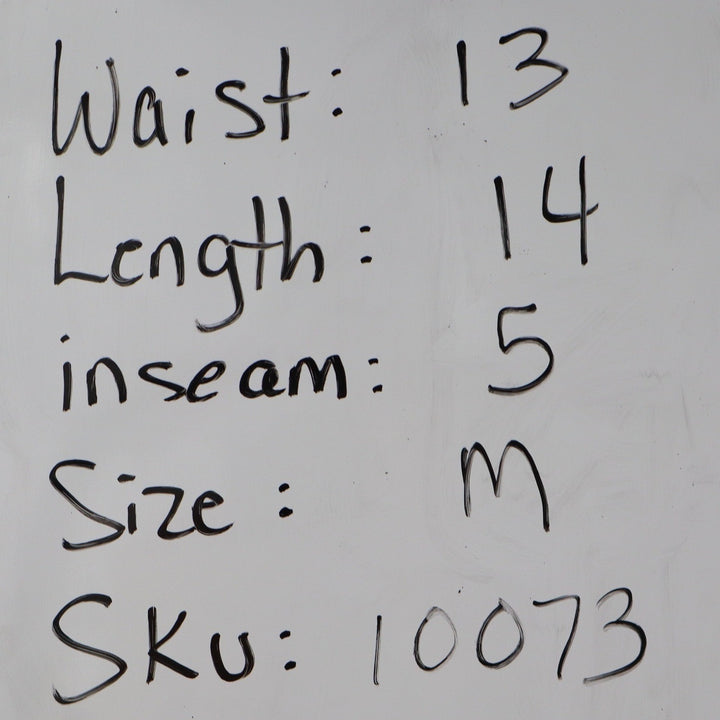 Waist: 13
Length: 14
inseam: 5
Size: M
SKU: 10073